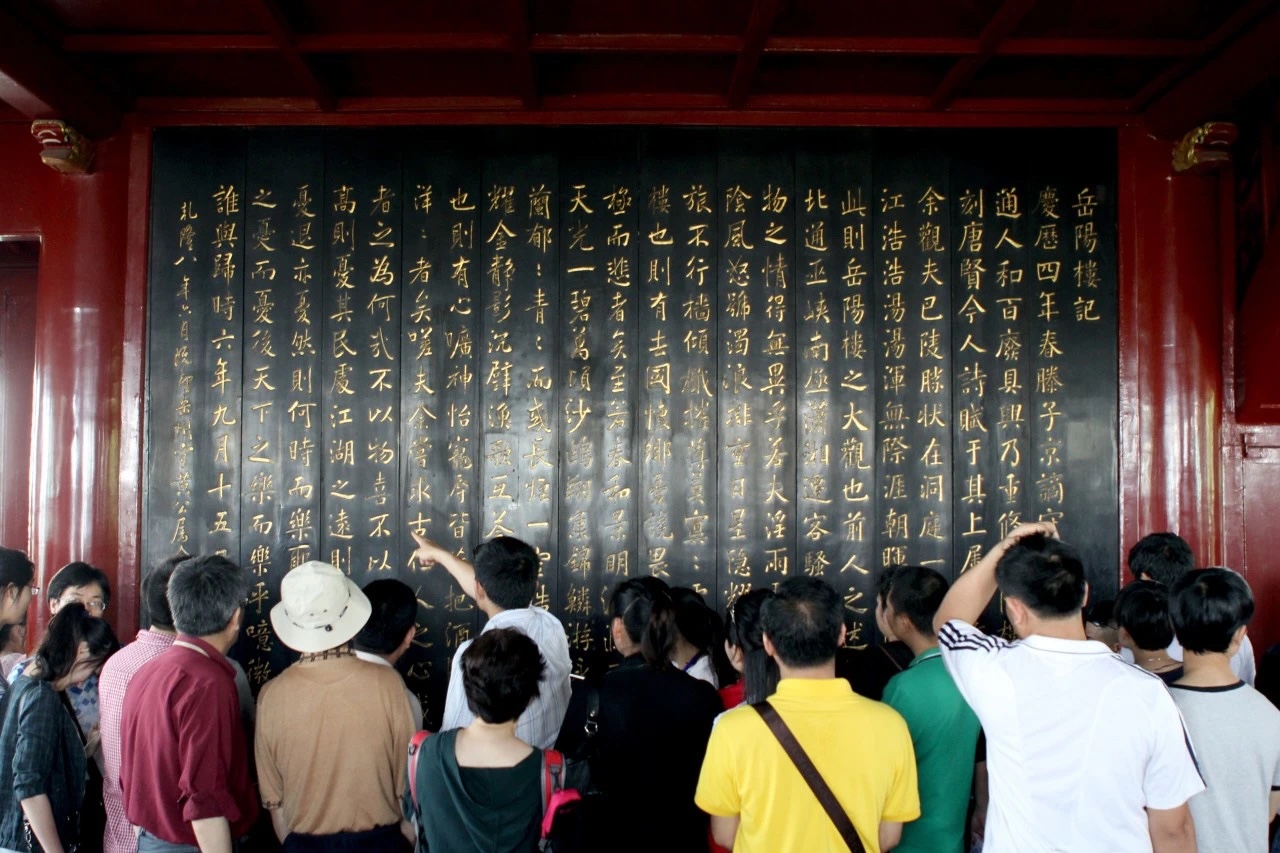 岳陽樓記
慶歷四年春滕子京謫守
通人和百廢具興乃重修
刻唐賢今人詩賦于其上屬
余觀夫巴陵勝状在洞庭一
江浩浩湯湯渾無際涯朝暉
此則岳陽樓之大觀也前人之述
北通巫峽南極瀟湘遷客騷
物之情得無異乎若夫淫雨
陰風怒號濁浪排空日星隱耀
旅不行檣傾檝摧薄暮冥:
樓也則有去國懷鄉憂讒畏
極而悲者矣至若春和景明
天光一碧萬頃沙鷗翔集錦鱗游
蘭郁:青:而或長煙一空皓
耀金静影沉璧漁歌互答
也則有心曠神怡寵辱皆忘把酒
洋:者矣嗟夫余嘗求古仁人之心
者之為何哉不以物喜不以
高則憂其民處江湖之遠則
憂退亦憂然則何時而樂耶
之憂而憂後天下之樂而樂乎噫微
誰與歸時六年九月十五日
乾隆八年六月